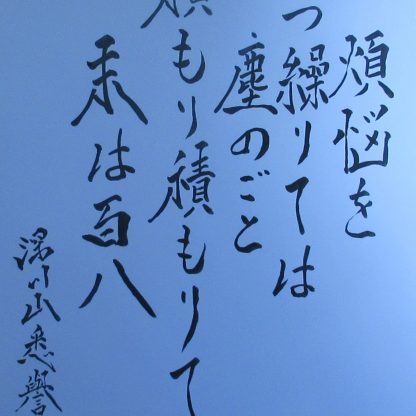 煩悩を
つ繰りては
塵のごと
積もり積もりて
は百八
川山 譽